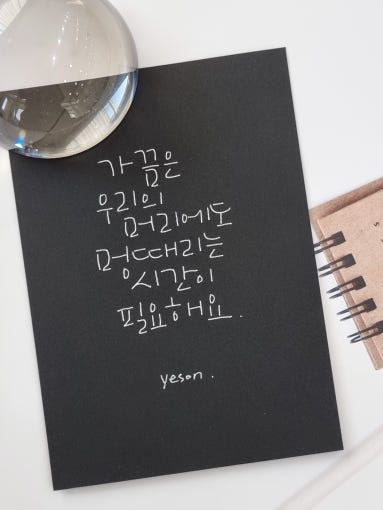 가끔은
우리의
머리에도
멍때리는
시간이
필요해요.
yeson.